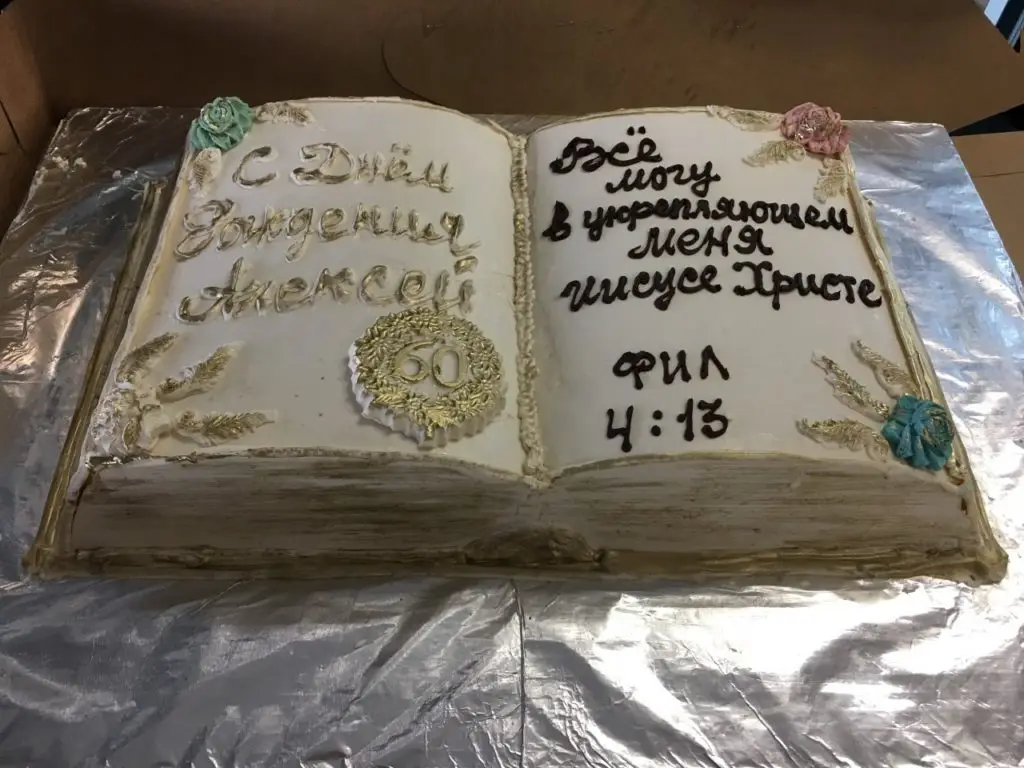 С Днём
Рождения
Алексей
60
Всё
могу
в укрепляющем
меня
Иисусе Христе
ФИЛ
4:13